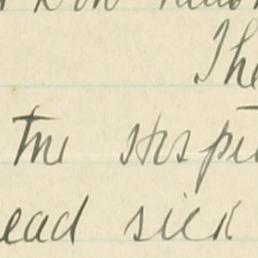 The
the Hospi
ead sick